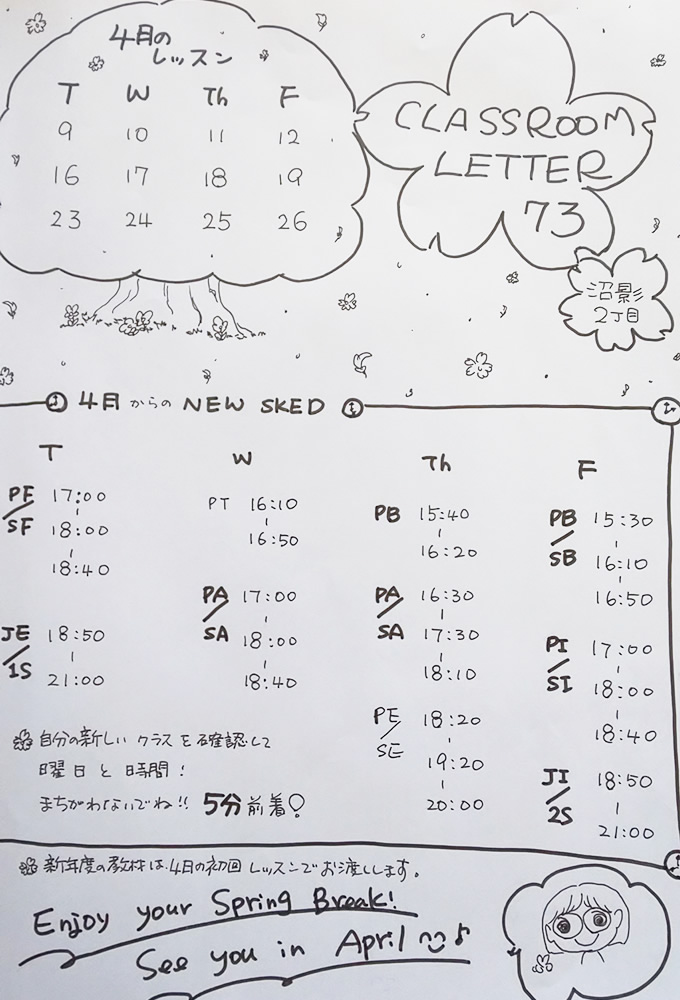 4月の
レッスン
T W Th F
9 10 11 12
16 17 18 19
23 24 25 26
CLASSROOM
LETTER
73
沼影
2丁目
4月からの NEW SKED
T
PF/SF 17:00
18:00
18:40
JE/1S 18:50
21:00
W
PT 16:10
16:50
PA/SA 17:00
18:00
18:40
Th
PB 15:40
16:20
PA/SA 16:30
17:30
18:10
PE/SE 18:20
19:20
20:00
F
PB/SB 15:30
16:10
16:50
PI/SI 17:00
18:00
18:40
JI/2S 18:50
21:00
自分の新しい クラスを確認して
曜日と時間!
まちがわないでね!! 5分前着!
新年度の教材は、4月の初回レッスンでお渡しします。
Enjoy your Spring Break!
See you in April